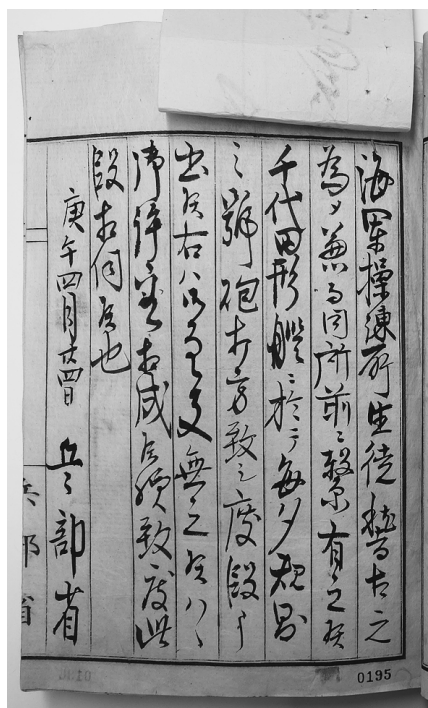 海軍操練所生徒稽古之
為メ兼而同所前ニ繋泊有之候
千代田形艦ニ於テ毎夕規則
之號砲打方致シ度段申
出候右ハ御差支無之候ハヽ
御評決相成候様致度此
段相伺候也
庚午四月廿四日 兵部省
兵部省
0195